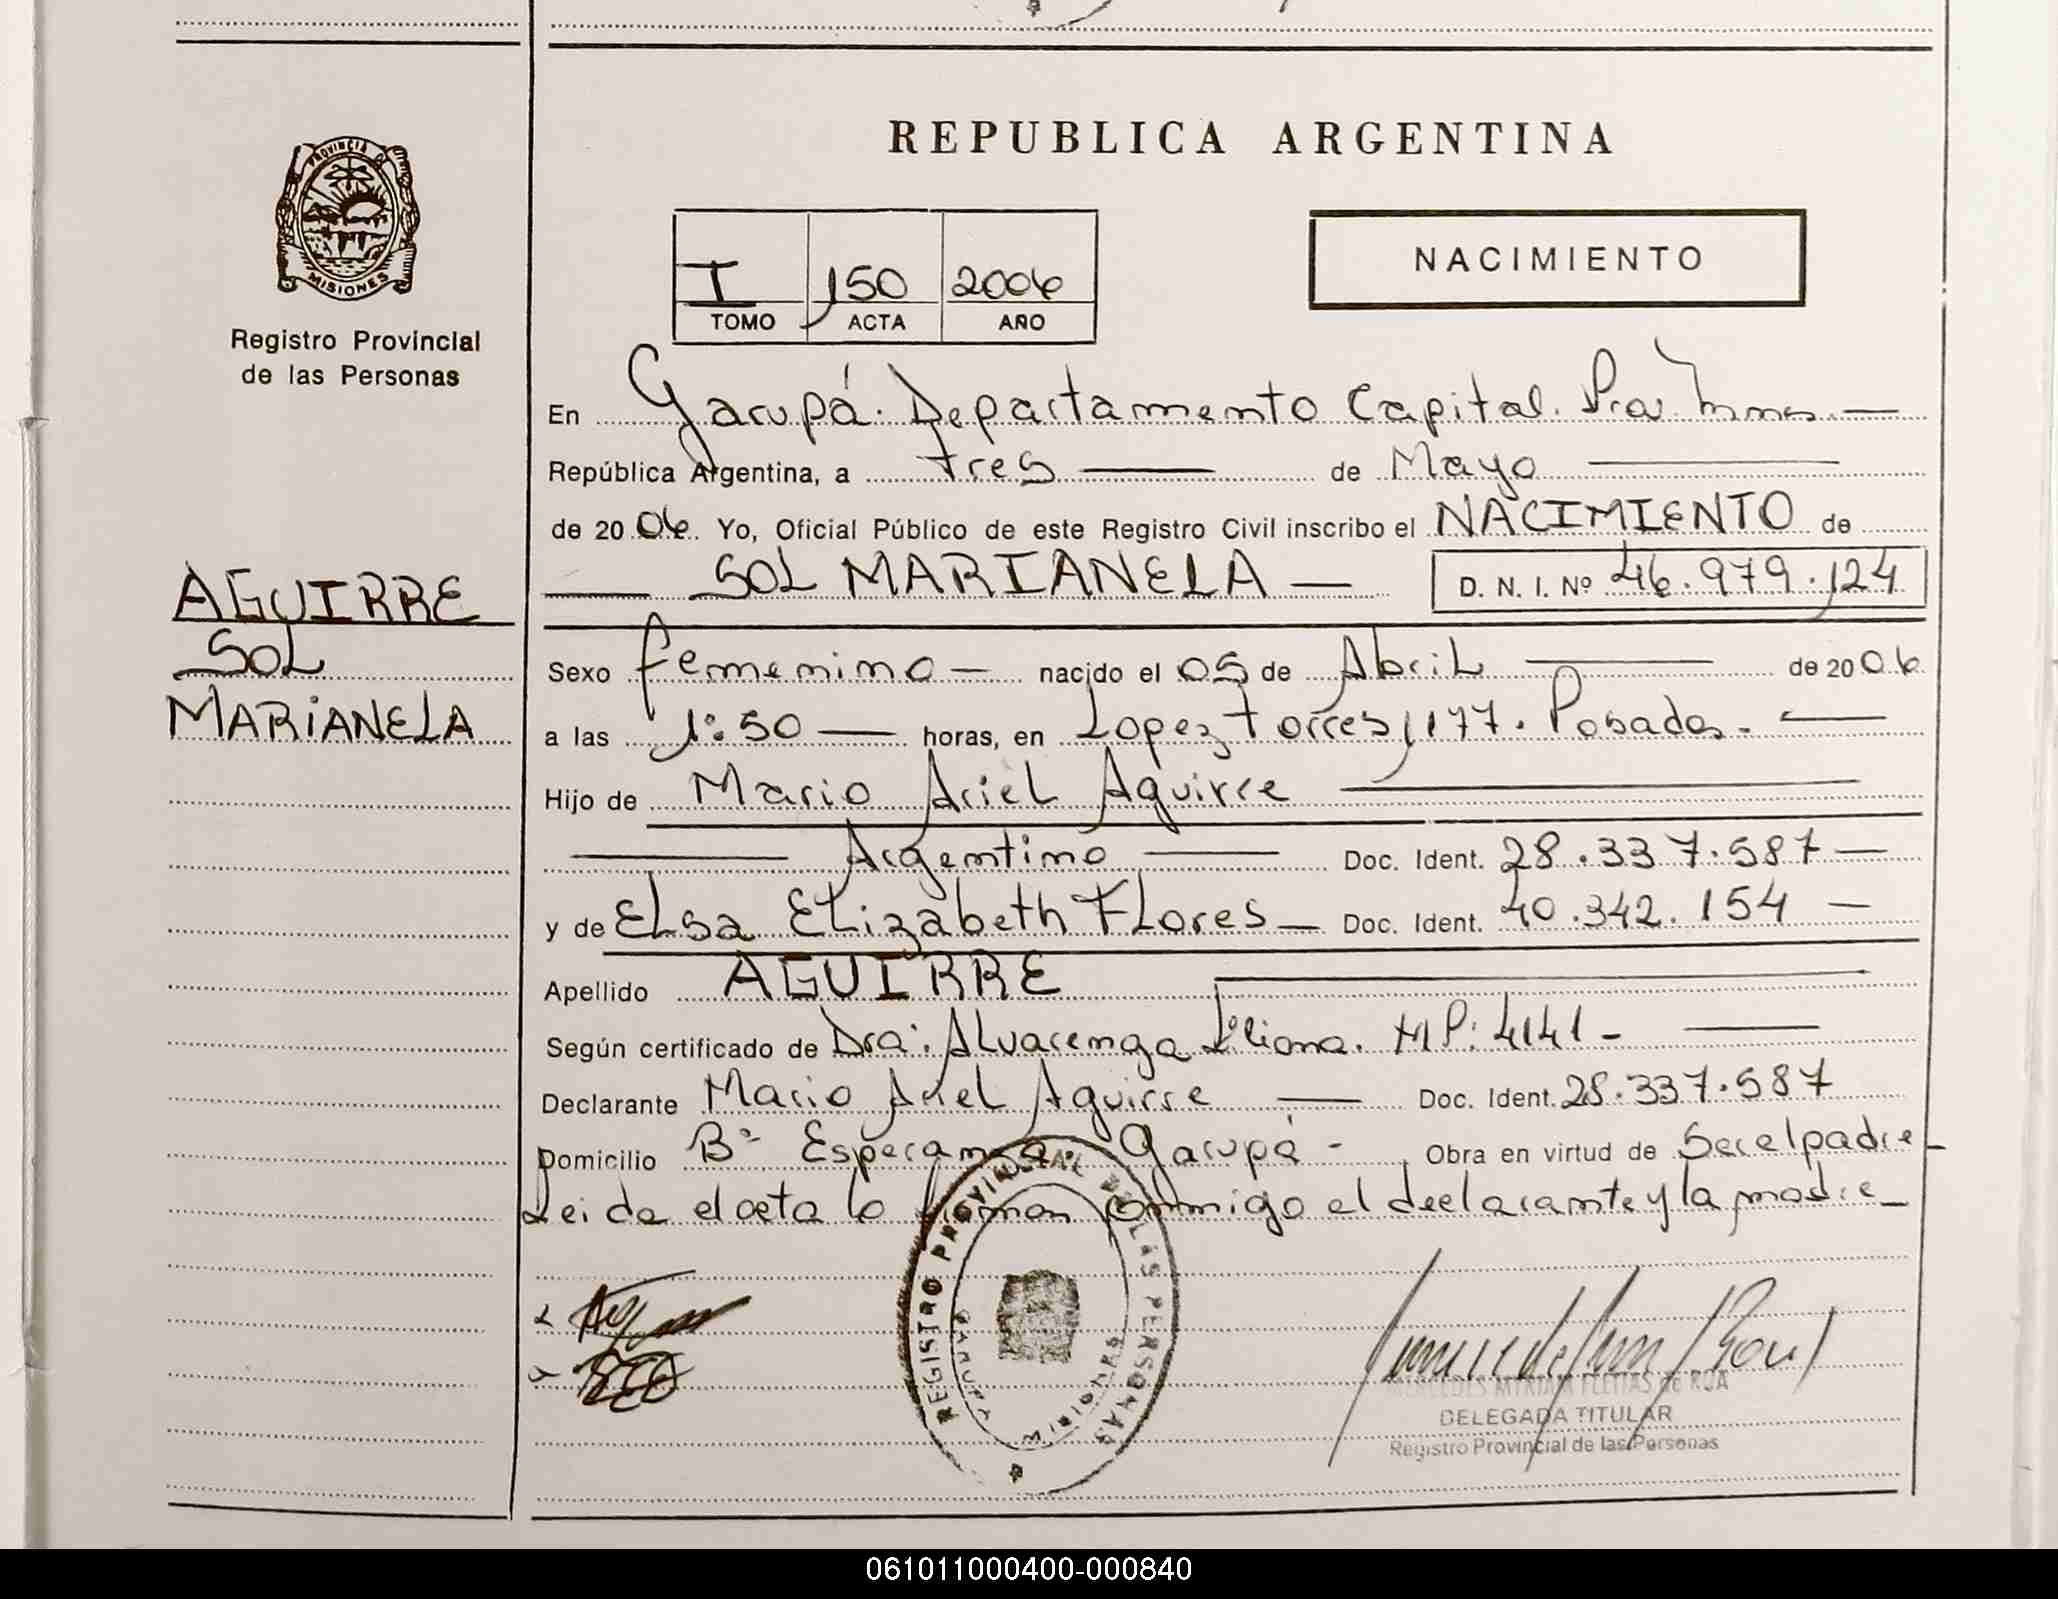 REPUBLICA ARGENTINA
PROVINCIA DE
MISIONES
Registro Provincial
de las Personas
I 150 2006
TOMO ACTA AÑO
NACIMIENTO
En Garupá. Departamento Capital. Pcia. Mnes. —
República Argentina, a tres — de Mayo —
de 2006. Yo, Oficial Público de este Registro Civil inscribo el NACIMIENTO de
— SOL MARIANELA — D. N. I. Nº 46.979.124
AGUIRRE
SOL
MARIANELA
Sexo femenino — nacido el 05 de Abril — de 2006
a las 1:50 — horas, en Lopez Torres 1177. Posadas. —
Hijo de Mario Ariel Aguirre —
— Argentino — Doc. Ident. 28.337.587 —
y de Elsa Elizabeth Flores — Doc. Ident. 40.342.154 —
Apellido AGUIRRE —
Según certificado de Dra: Alvarenga Liliana. MP: 4141 - —
Declarante Mario Ariel Aguirre — Doc. Ident. 28.337.587
Domicilio Bº Esperanza. Garupá - Obra en virtud de Ser el padre -
Leida el acta la firman conmigo el declarante y la madre —
REGISTRO PROVINCIAL DE LAS PERSONAS
GARUPA
MISIONES
MERCEDES MYRIAM FLEITAS de ROA
DELEGADA TITULAR
Registro Provincial de las Personas
061011000400-000840